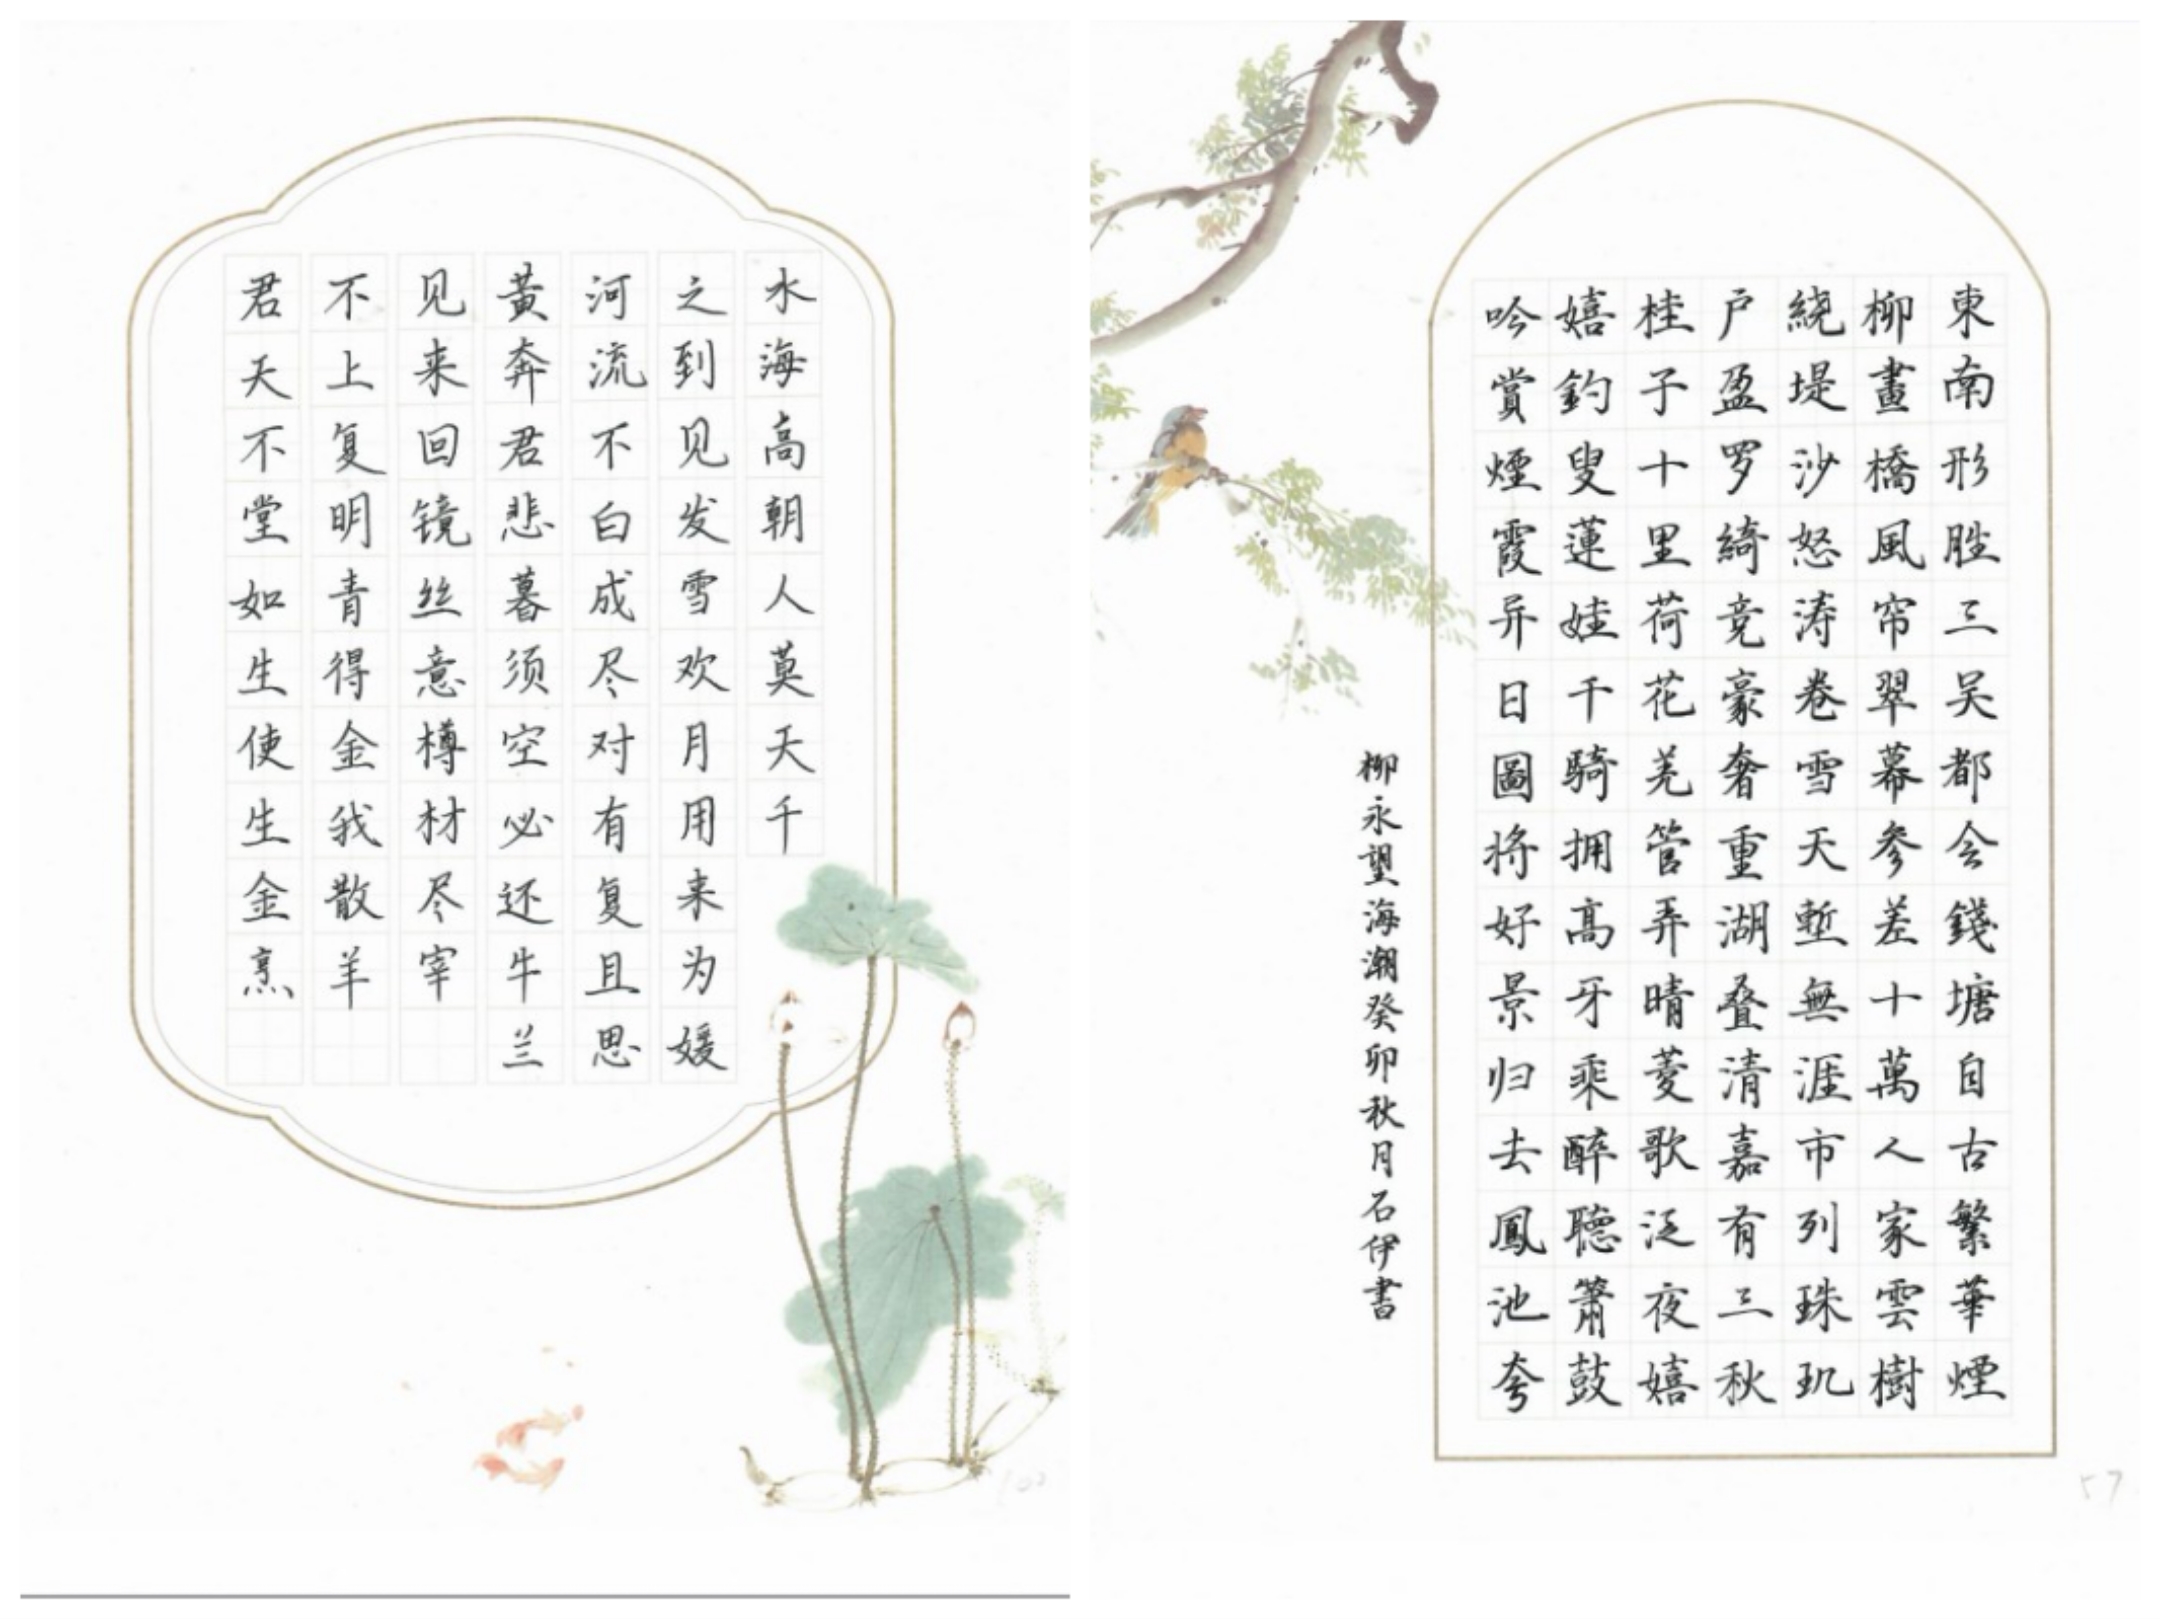 君不见黄河之水
天上来奔流到海
不复回君不见高
堂明镜悲白发朝
如青丝暮成雪人
生得意须尽欢莫
使金樽空对月天
生我材必有用千
金散尽还复来
烹羊宰牛且为
兰思媛
東南形胜三吴都会錢塘自古繁華煙
柳畫橋風帘翠幕参差十萬人家雲樹
繞堤沙怒涛卷雪天塹無涯市列珠玑
户盈罗綺竞豪奢重湖叠清嘉有三秋
桂子十里荷花羌管弄晴菱歌泛夜嬉
嬉釣叟蓮娃千騎拥高牙乘醉聽簫鼓
吟賞煙霞异日圖将好景归去鳳池夸
柳永望海潮癸卯秋月石伊書
57